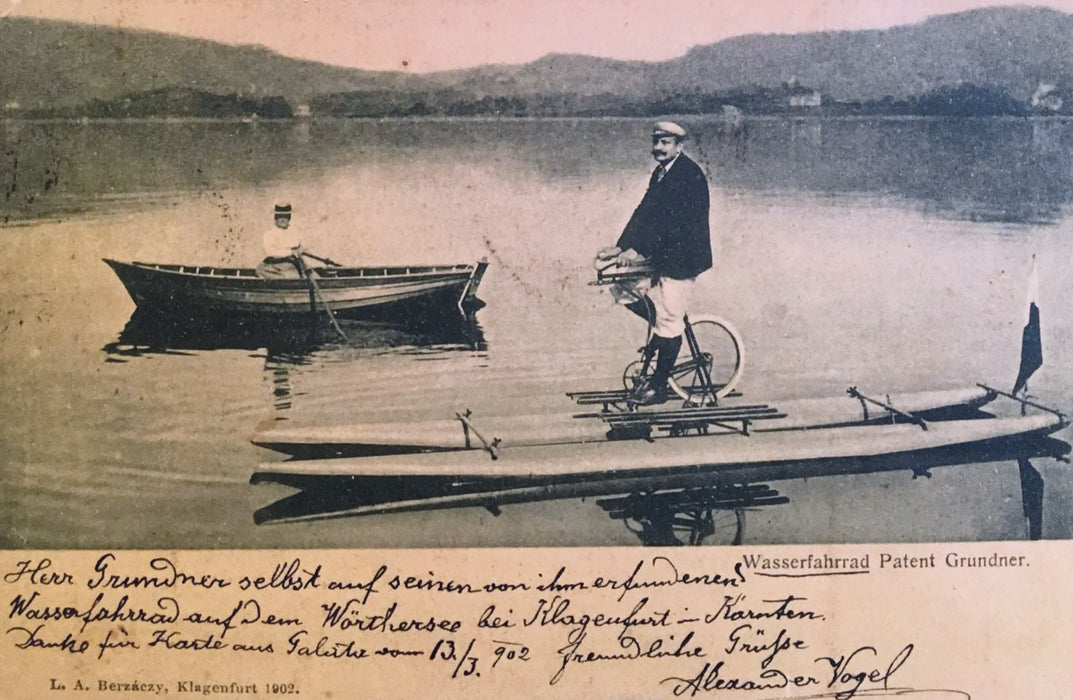 Wasserfahrrad Patent Grundner.
Herr Grundner selbst auf seinen von ihm erfundenen
Wasserfahrrad auf dem Wörthersee bei Klagenfurt – Kärnten.
Danke für Karte aus vom 13./3. 902 freundliche Grüße
Alexander Vogel
L. A. Berzáczy, Klagenfurt 1902.